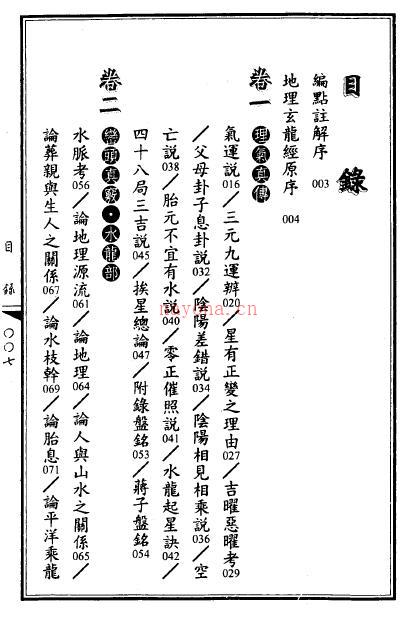 目錄
編點註解序 003
地理玄龍經原序 004
卷一 理氣真傳
氣運説016／三元九運辨020／星有正變之理由027／吉曜惡曜考029
／父母卦子息卦説032／陰陽差錯説034／陰陽相見相乘説036／空
亡説038／胎元不宜有水説040／零正催照説041／水龍起星訣042／
四十八局三吉説045／挨星總論047／附錄盤銘053／蔣子盤銘054
卷二 巒頭真竅・水龍部
水脈考056／論地理源流061／論地理064／論人與山水之關係065／
論葬親與生人之關係067／論水枝幹069／論胎息071／論平洋乘龍
目錄
〇〇七
nayona.cn